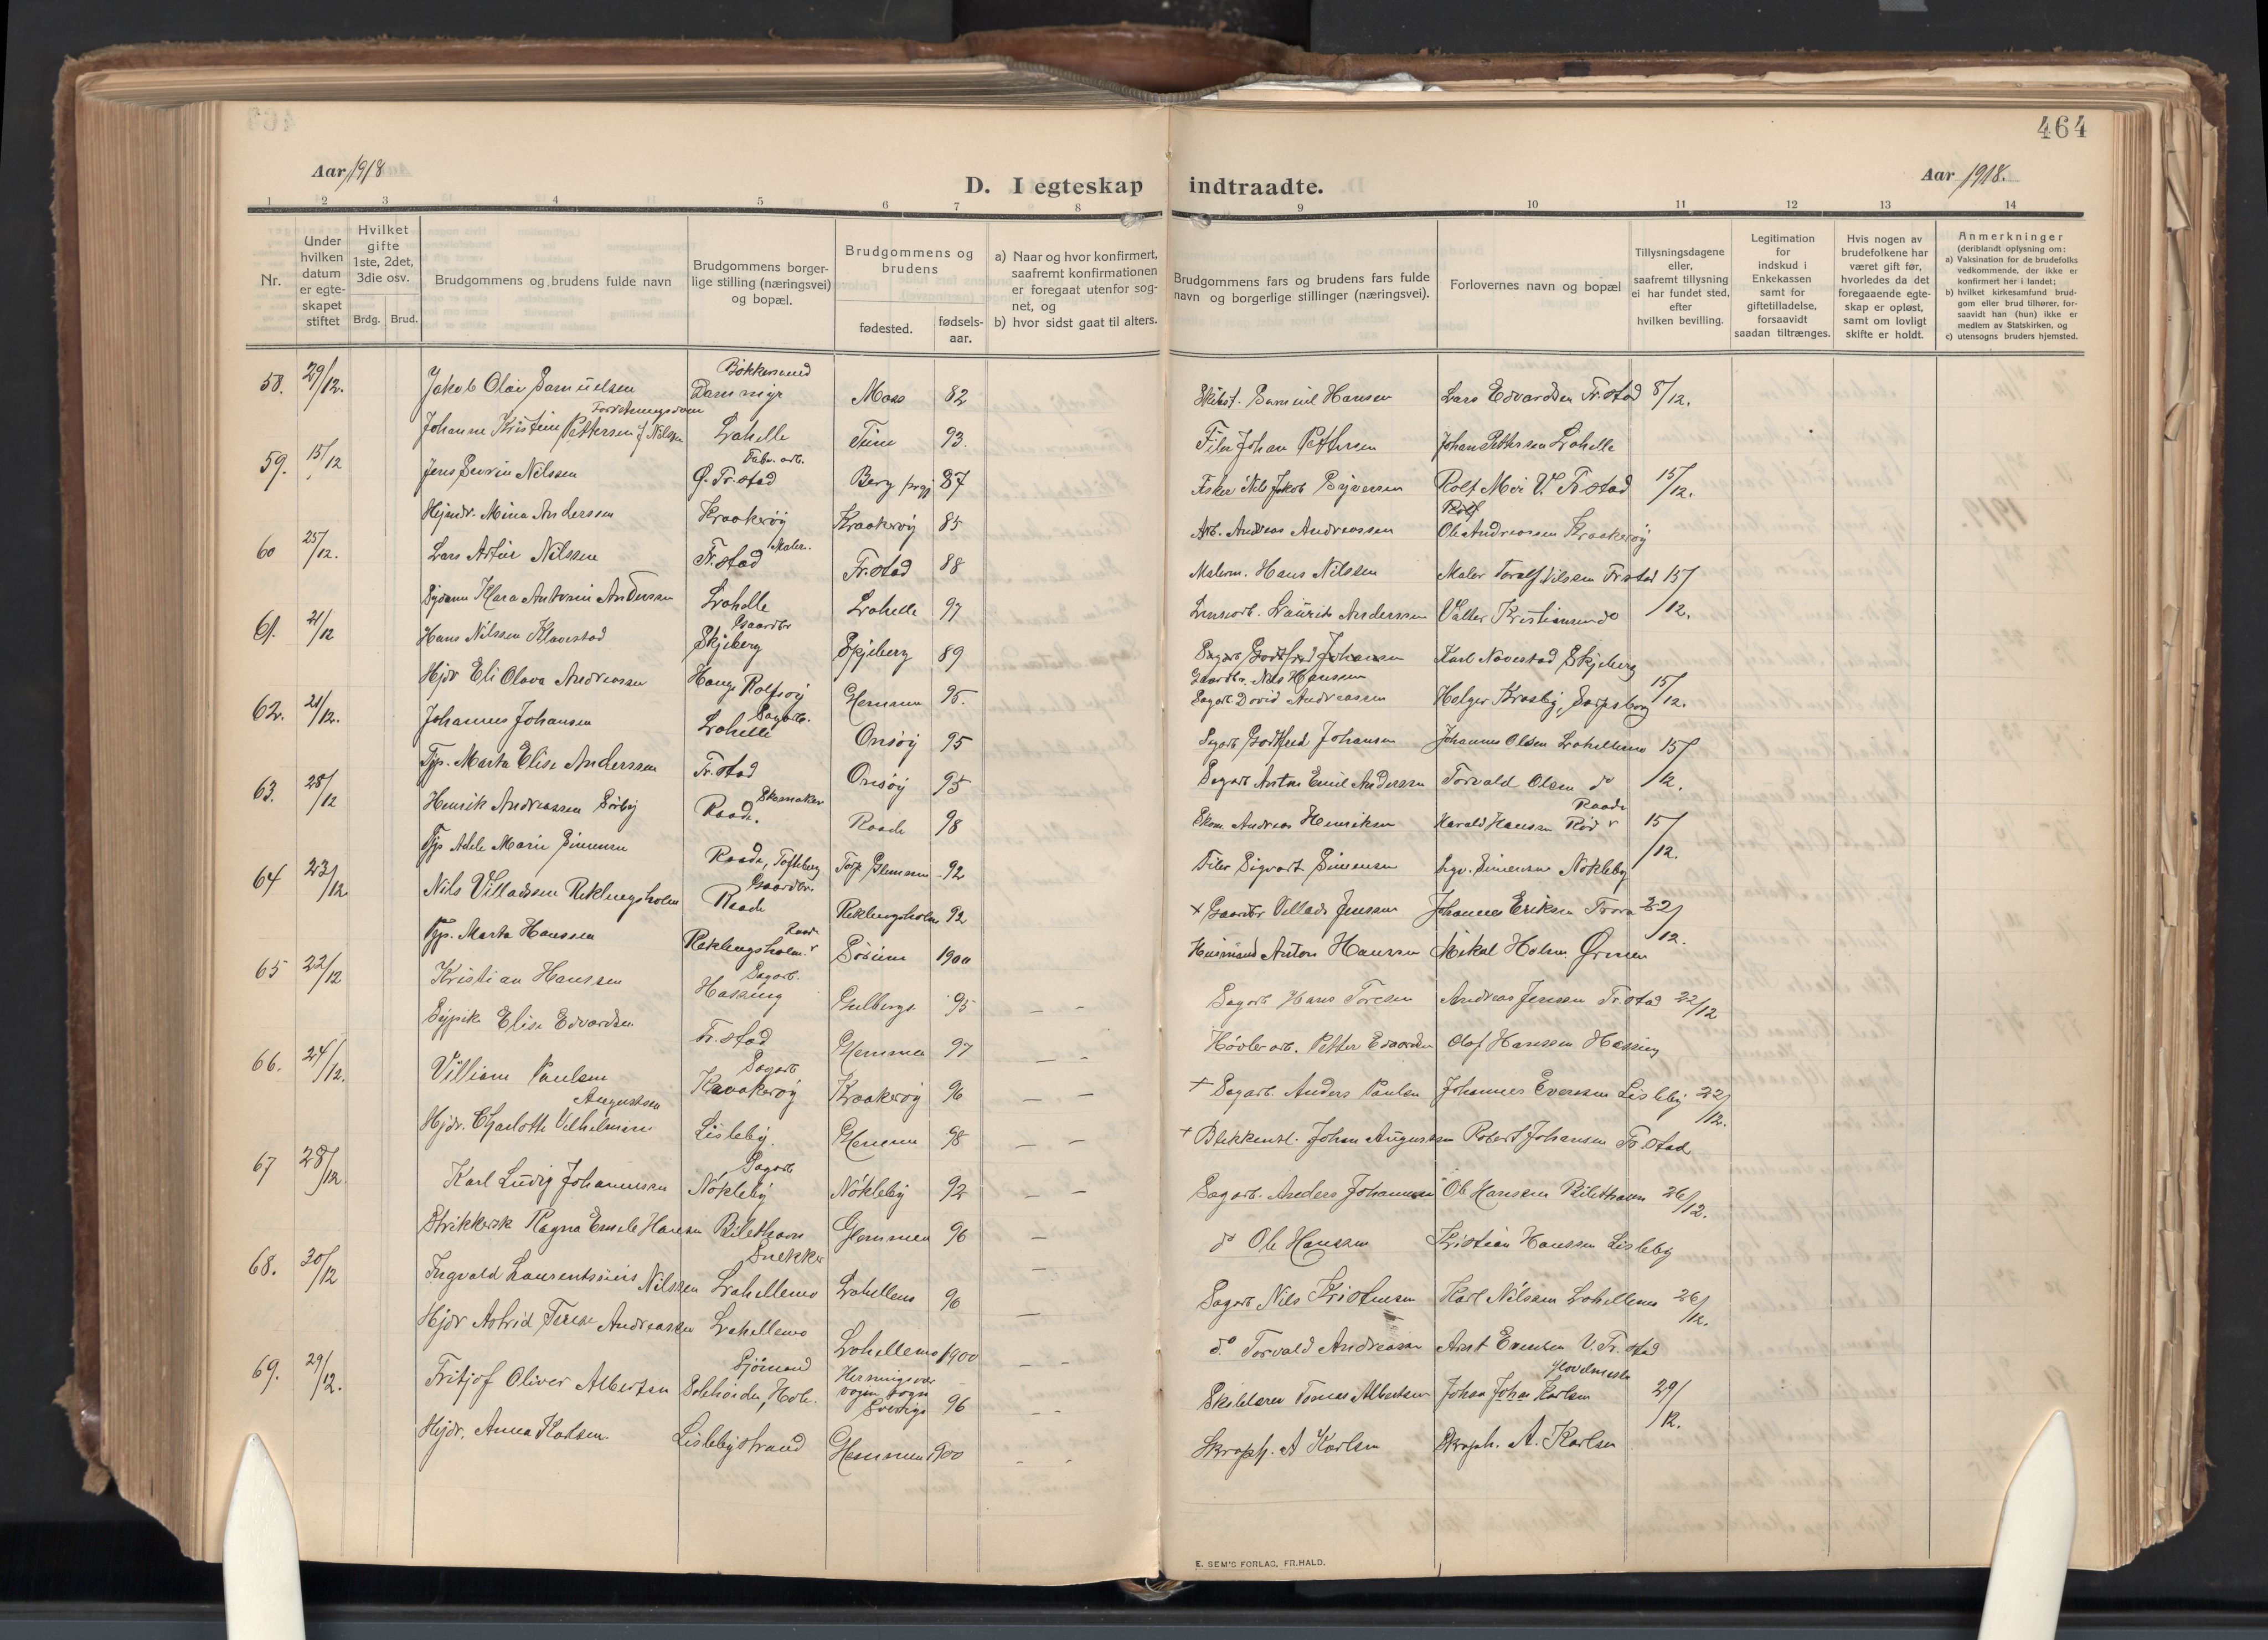 464
Aar 1918
D. I egteskap indtraadte.
Aar 1918.
1 2 3 4 5 6 7 8 9 10 11 12 13 14
Nr.
Under hvilken datum er egte-skapet stiftet
Hvilket gifte 1ste, 2det, 3die osv.
Brdg. Brud.
Brudgommens og brudens fulde navn
Brudgommens borger-lige stilling (næringsvei) og bopæl.
Brudgommens og brudens
fødested. fødsels-aar.
a) Naar og hvor konfirmert, saafremt konfirmationen er foregaat utenfor sog-net, og
b) hvor sidst gaat til alters.
Brudgommens fars og brudens fars fulde navn og borgerlige stillinger (næringsvei).
Forlovernes navn og bopæl
Tillysningsdagene eller, saafremt tillysning ei har fundet sted, efter hvilken bevilling.
Legitimation for indskud i Enkekassen samt for giftetilladelse, forsaavidt saadan tiltrænges.
Hvis nogen av brudefolkene har været gift før, hvorledes da det foregaaende egte-skap er opløst, samt om lovligt skifte er holdt.
Anmerkninger
(deriblandt oplysning om:
a) Vaksination for de brudefolks vedkommende, der ikke er konfirmert her i landet;
b) hvilket kirkesamfund brud-gom eller brud tilhører, for-saavidt han (hun) ikke er medlem av Statskirken, og
c) utensogns bruders hjemsted.
58. 29/12. Jakob Olav Samuelsen Moss 82 Samuel Hansen Lars Edvardsen Fr.stad 8/12.
Johanne Kristine Pettersen f. Nilsen Lahelle Tune 93. Filer Johan Pettersen Johan Pettersen Lahelle
59. 15/12 Jens Severin Nilssen Fabr. arb. Ø. Fr.stad Berg 87 Fisker Nils Jakob Rolf Moe V. Fr.stad 15/12.
Hejmdr. Mina Anderssen Kraakerøy Kraakerøy 85 Arb. Andreas Andreassen Ole Andreassen Kraakerøy
60 25/12. Lars Artur Nilssen Maler. Fr.stad Fr.stad 88 Malerm. Hans Nilssen Maler Toralf Nilssen Fr.stad 15/12.
Klara Antonie Anderssen Lahelle Lahelle 97 Laurits Anderssen Valter Kristiansen do
61. 21/12 Hans Nilssen Klavestad Gaardbr Skjeberg Skjeberg 89 Gaardbr. Nils Hansen Karl Navestad Skjeberg 15/12.
Hjdr Eli Olava Andreassen Hauge Rolfsøy Glemmen 95. Sagarb. David Andreassen Helge Krosby, Sarpsborg
62. 21/12. Johannes Johansen Sagarb. Lahelle Onsøy 95 Sagarb Godtfred Johansen Johannes Olsen Lahellemo 15/12.
Typ. Marta Elise Anderssen Fr.stad Onsøy 95 Sagarb Anton Emil Anderssen Torvald Olsen do
63. 28/12 Henrik Andreassen Sørby Skomaker Raade. Raade 98 Skom. Andreas Henriksen Harald Hansen Rød Raade 15/12.
Typ Adele Marie Simensen Raade, Tofteberg Torp Glemmen 92 Filer Sigvart Simensen Sigv. Simensen Nøkleby
64 23/12. Nils Villadssen Reklingsholm Gaardbr. Raade Reklingsholm 92 + Gaardbr Villads Jenssen Johannes Eriksen 22/12.
Typ. Marta Hanssen Reklingsholm Raade Sørum 1900 Husmand Anton Hanssen Mikal Holm Ørmen
65 22/12 Kristian Hanssen Sagarb. Hassing 95 Sagarb Hans Toresen Andreas Jenssen Fr.stad 22/12
Sypike Elise Edvardsen Fr.stad Glemmen 97 Høvlerarb. Petter Edvardsen Olaf Hanssen Hassing
66. 24/12. Villiam Paulsen Sagarb Kraakerøy Kraakerøy 96 + Sagarb. Anders Paulsen Johannes Evensen Lisleby 22/12.
Hjdr. Charlotte Vilhelmine Augustsen Lisleby. Glemmen 98 + Johan Augustsen Robert Johansen Fr.stad
67 28/12 Karl Ludvig Johannessen Sagarb Nøkleby Nøkleby 92 Sagarb. Anders Johannessen Ole Hanssen Bilethavn 26/12.
Strikkersk Ragna Emelie Hansen Bilethavn Glemmen 96 do Ole Hanssen Kristian Hanssen Lisleby
68. 30/12 Ingvald Laurentsius Nilssen Snekker Lahellemo Lahellemo 96 Sagarb Nils Kristensen Karl Nilssen Lahellemo 26/12.
Hjdr Astrid Andreassen Lahellemo Lahellemo 1900 do. Torvald Andreassen V. Fr.stad
69. 29/12. Fritjof Oliver Albertsen Sjømand Sverige 96 Tomas Albertsen Johan Karlsen 29/12.
Hjdr. Anna Karlsen Lislebystrand Glemmen 1900 Skraph. A Karlsen Skraph. A. Karlsen
E. SEM'S FORLAG, FR.HALD.